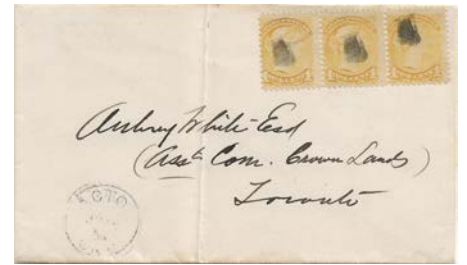 Aubrey White Esq
(Asst Com. Crown Lands)
Toronto
ACTO